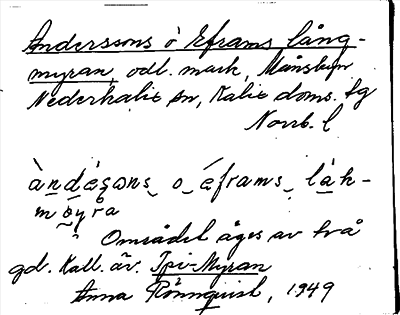 Anderssons o Eframs lång-
myran, odl. mark, Månsbyn
Nederkalix sn, Kalix doms. tg
Norrb. l
àndéṣɷns o éframs låk-
myra
Området äges av två
gd. Kall. äv. Ipi-Myran
Anna Rönnquist, 1949